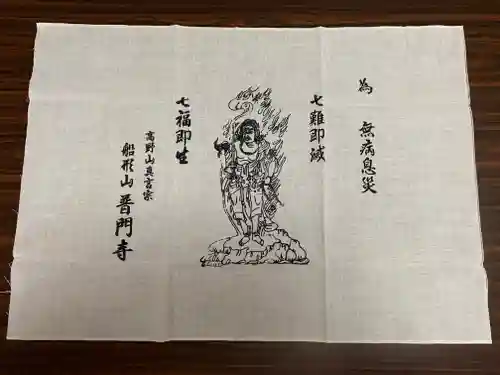 為 無病息災
七難即滅
七福即生
高野山真言宗
船形山 普門寺